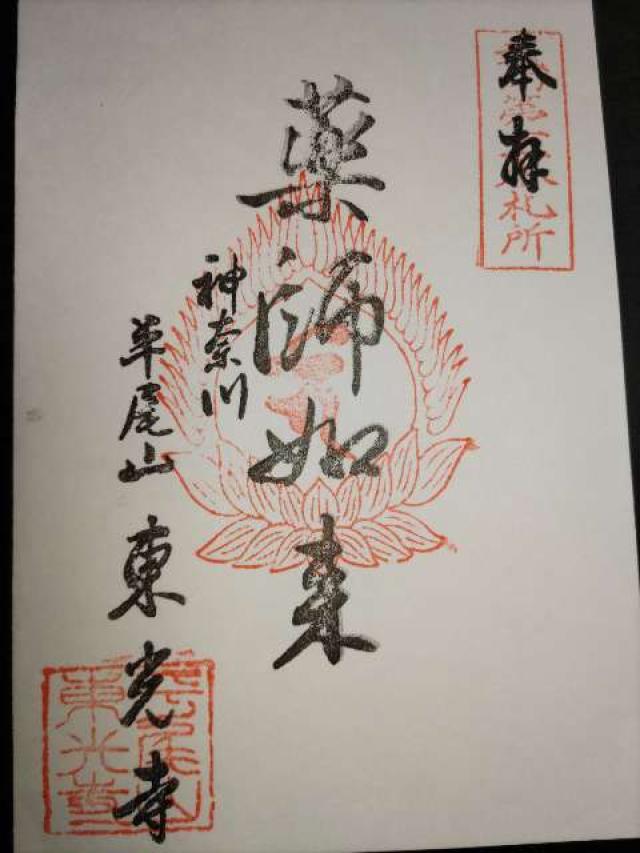 奉拝
札所
薬師如来
神奈川
平尾山 東光寺
東光寺